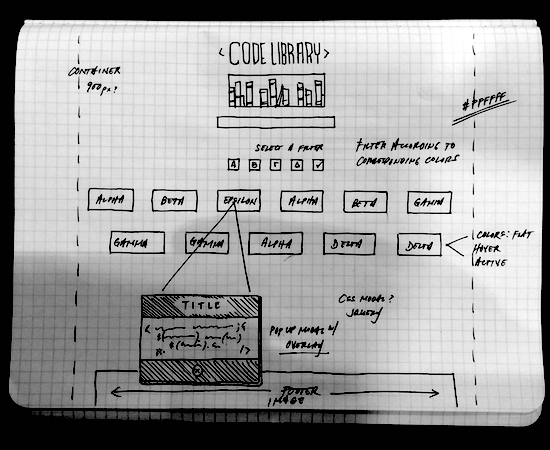 <CODE LIBRARY>
CONTAINER
900px?
#FFFFFF
SELECT A FILTER
FILTER ACCORDING TO
CORRESPONDING COLORS
A B Γ Δ ✓
ALPHA BETA EPSILON ALPHA BETA GAMMA
GAMMA GAMMA ALPHA DELTA DELTA
COLORS: FLAT
HOVER
ACTIVE
TITLE
CSS MODAL?
JQUERY
POP UP MODAL W/
OVERLAY
/>
FOOTER
IMAGE